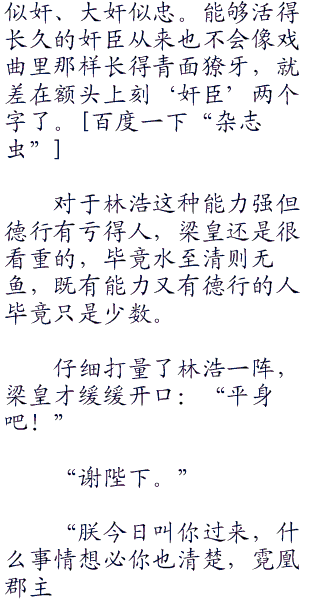 似奸、大奸似忠。能够活得
长久的奸臣从来也不会像戏
曲里那样长得青面獠牙，就
差在额头上刻‘奸臣’两个
字了。[百度一下“杂志
虫”]
对于林浩这种能力强但
德行有亏得人，梁皇还是很
看重的，毕竟水至清则无
鱼，既有能力又有德行的人
毕竟只是少数。
仔细打量了林浩一阵，
梁皇才缓缓开口：“平身
吧！”
“谢陛下。”
“朕今日叫你过来，什
么事情想必你也清楚，霓凰
郡主